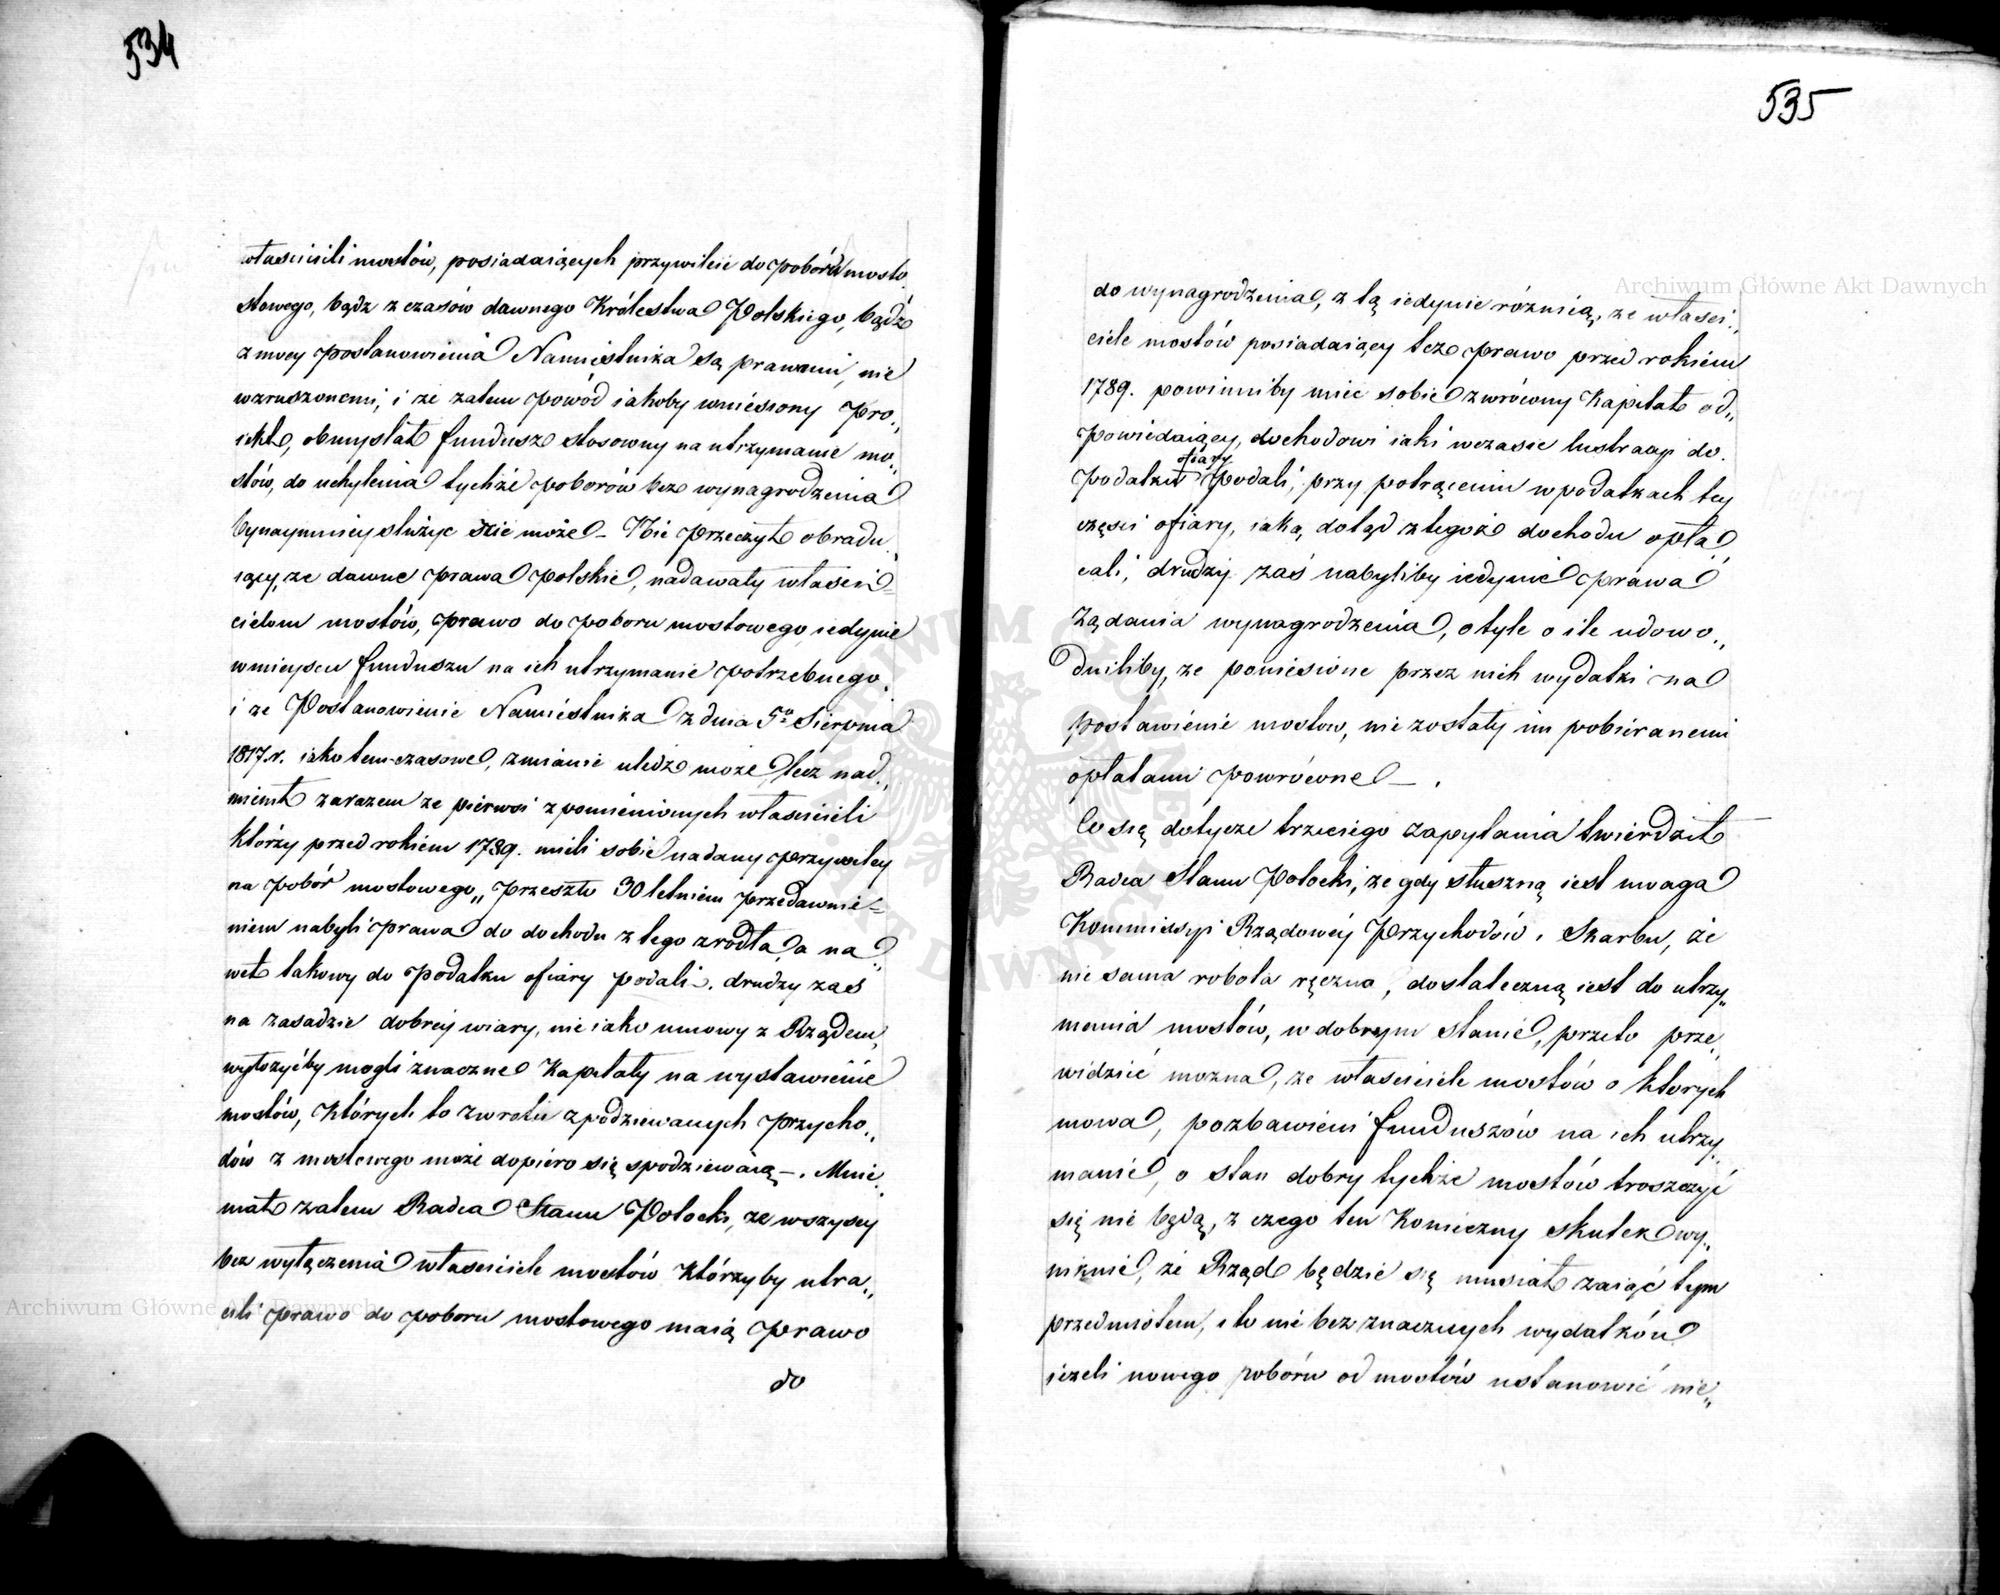 534
właścicieli mostów, posiadaiących przywileie do poboru mosto
stowego, bądz z czasów dawnego Królestwa Polskiego, bądź
z mocy postanowienia Namiestnika są prawami, nie
wzruszonemi, i ze zatem powód iakoby wniesiony Pro„
iekt, obmyślał fundusz stosowny na utrzymanie mo„
stów, do uchylenia tychże poborów bez wynagrodzenia
bynaymniey służyc nie może – Nie przeczył obradu
iący, ze dawne prawa polskie, nadawały właści=
cielom mostów, prawo do poboru mostowego iedynie
w mieyscu funduszu na ich utrzymanie potrzebnego,
i ze Postanowienie Namiestnika z dnia 5º Sierpnia
1817. r. iako tem-czasowe, zmianie uledz może, lecz nad„
mienił zarazem ze pierwsi z pomienionych właścicieli
którzy przed rokiem 1789. mieli sobie nadany przywiley
na pobór mostowego„ przeszło 30 letniem przedawnie=
niem nabyli prawa do dochodu z tego zrodła, a na„
wet takowy do podatku ofiary podali –. drudzy zaś
na zasadzie dobrey wiary, nie iako umowy z Rządem,
wyłożyćby mogli znaczne Kapitały na wystawienie
mostów, których to zwrotu z podziewanych przycho„
dów z mostowego może dopiero się spodziewaią –. Mnie„
mał zatem Radca Stanu Potocki, ze wszyscy
bez wyłączenia właściciele mostów którzyby utra„
cili prawo do poboru mostowego maią prawo
do
535
do wynagrodzenia, z tą iedynie różnią, ze właści„
ciele mostów posiadaiący też prawo przed rokiem
1789. powinniby mieć sobie zwrócony Kapitał od„
powiedaiący, dochodowi iaki w czasie lustracyi do
ofiary
podatku podali, przy potrąceniu w podatkach tey
części ofiary, iaką dotąd z tegoż dochodu opła„
cali, drudzy zaś nabyliby iedynie prawa
żądania wynagrodzenia, o tyle o ile udowo„
dniliby, ze poniesione przez nich wydatki na
postawienie mostow, nie zostały im pobieranemi
opłatami powrócone –.
Co się dotycze trzeciego zapytania twierdził
Radca Stanu Potocki, ze gdy słuszną iest uwaga
Kommissyi Rządowey Przychodów i Skarbu, że
nie sama robota ręczna, dostateczną iest do utrzy„
mania mostów, w dobrym stanie, przeto prze„
widzieć mozna, ze właściciele mostów o ktorych
mowa, pozbawieni funduszów na ich utrzy„
manie, o stan dobry tychże mostów troszczyć
się nie będą, z czego ten konieczny skutek wy„
niknie, że Rząd będzie się musiał zaiąć tym
przedmiotem, i to nie bez znacznych wydatków
iezeli nowego poboru od mostów ustanowić nie„
Archiwum Główne Akt Dawnych
Archiwum Główne Akt Dawnych